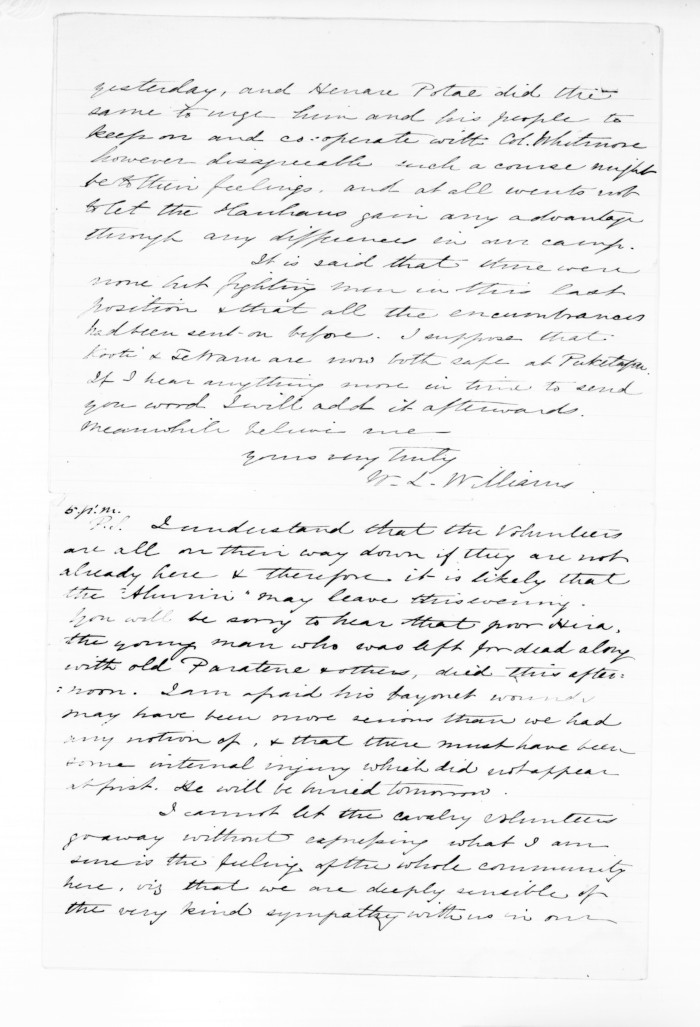 yesterday, and Henare Potae did the
same to urge him and his people to
keep on and co-operate with Col. Whitmore
however disagreeable such a course might
be to their feelings. and at all events not
to let the Hauhaus gain any advantage
through any differences in our camp.
It is said that there were
none but fighting men in this last
position & that all the encumbrances
had been sent on before. I suppose that
Kooti & TeWaru are now both safe at Puketapu.
If I hear anything more in time to send
you word I will add it afterwards.
Meanwhile believe me
yours very truly
W. L. Williams.
5 p.m.
P.S. I understand that the Volunteers
are all on their way down if they are not
already here & therefore it is likely that
the "Ahuriri" may leave this evening.
You will be sorry to hear that poor Hira,
the young man who was left for dead along
with old Paratene & others, died this after:
:noon. I am afraid his bayonet wounds
may have been more serious than we had
any notion of, & that there must have been
some internal injury which did not appear
at first. He will be buried tomorrow.
I cannot let the cavalry volunteers
go away without expressing what I am
sure is the feeling of the whole community
here, viz that we are deeply sensible of
the very kind sympathy with us in our